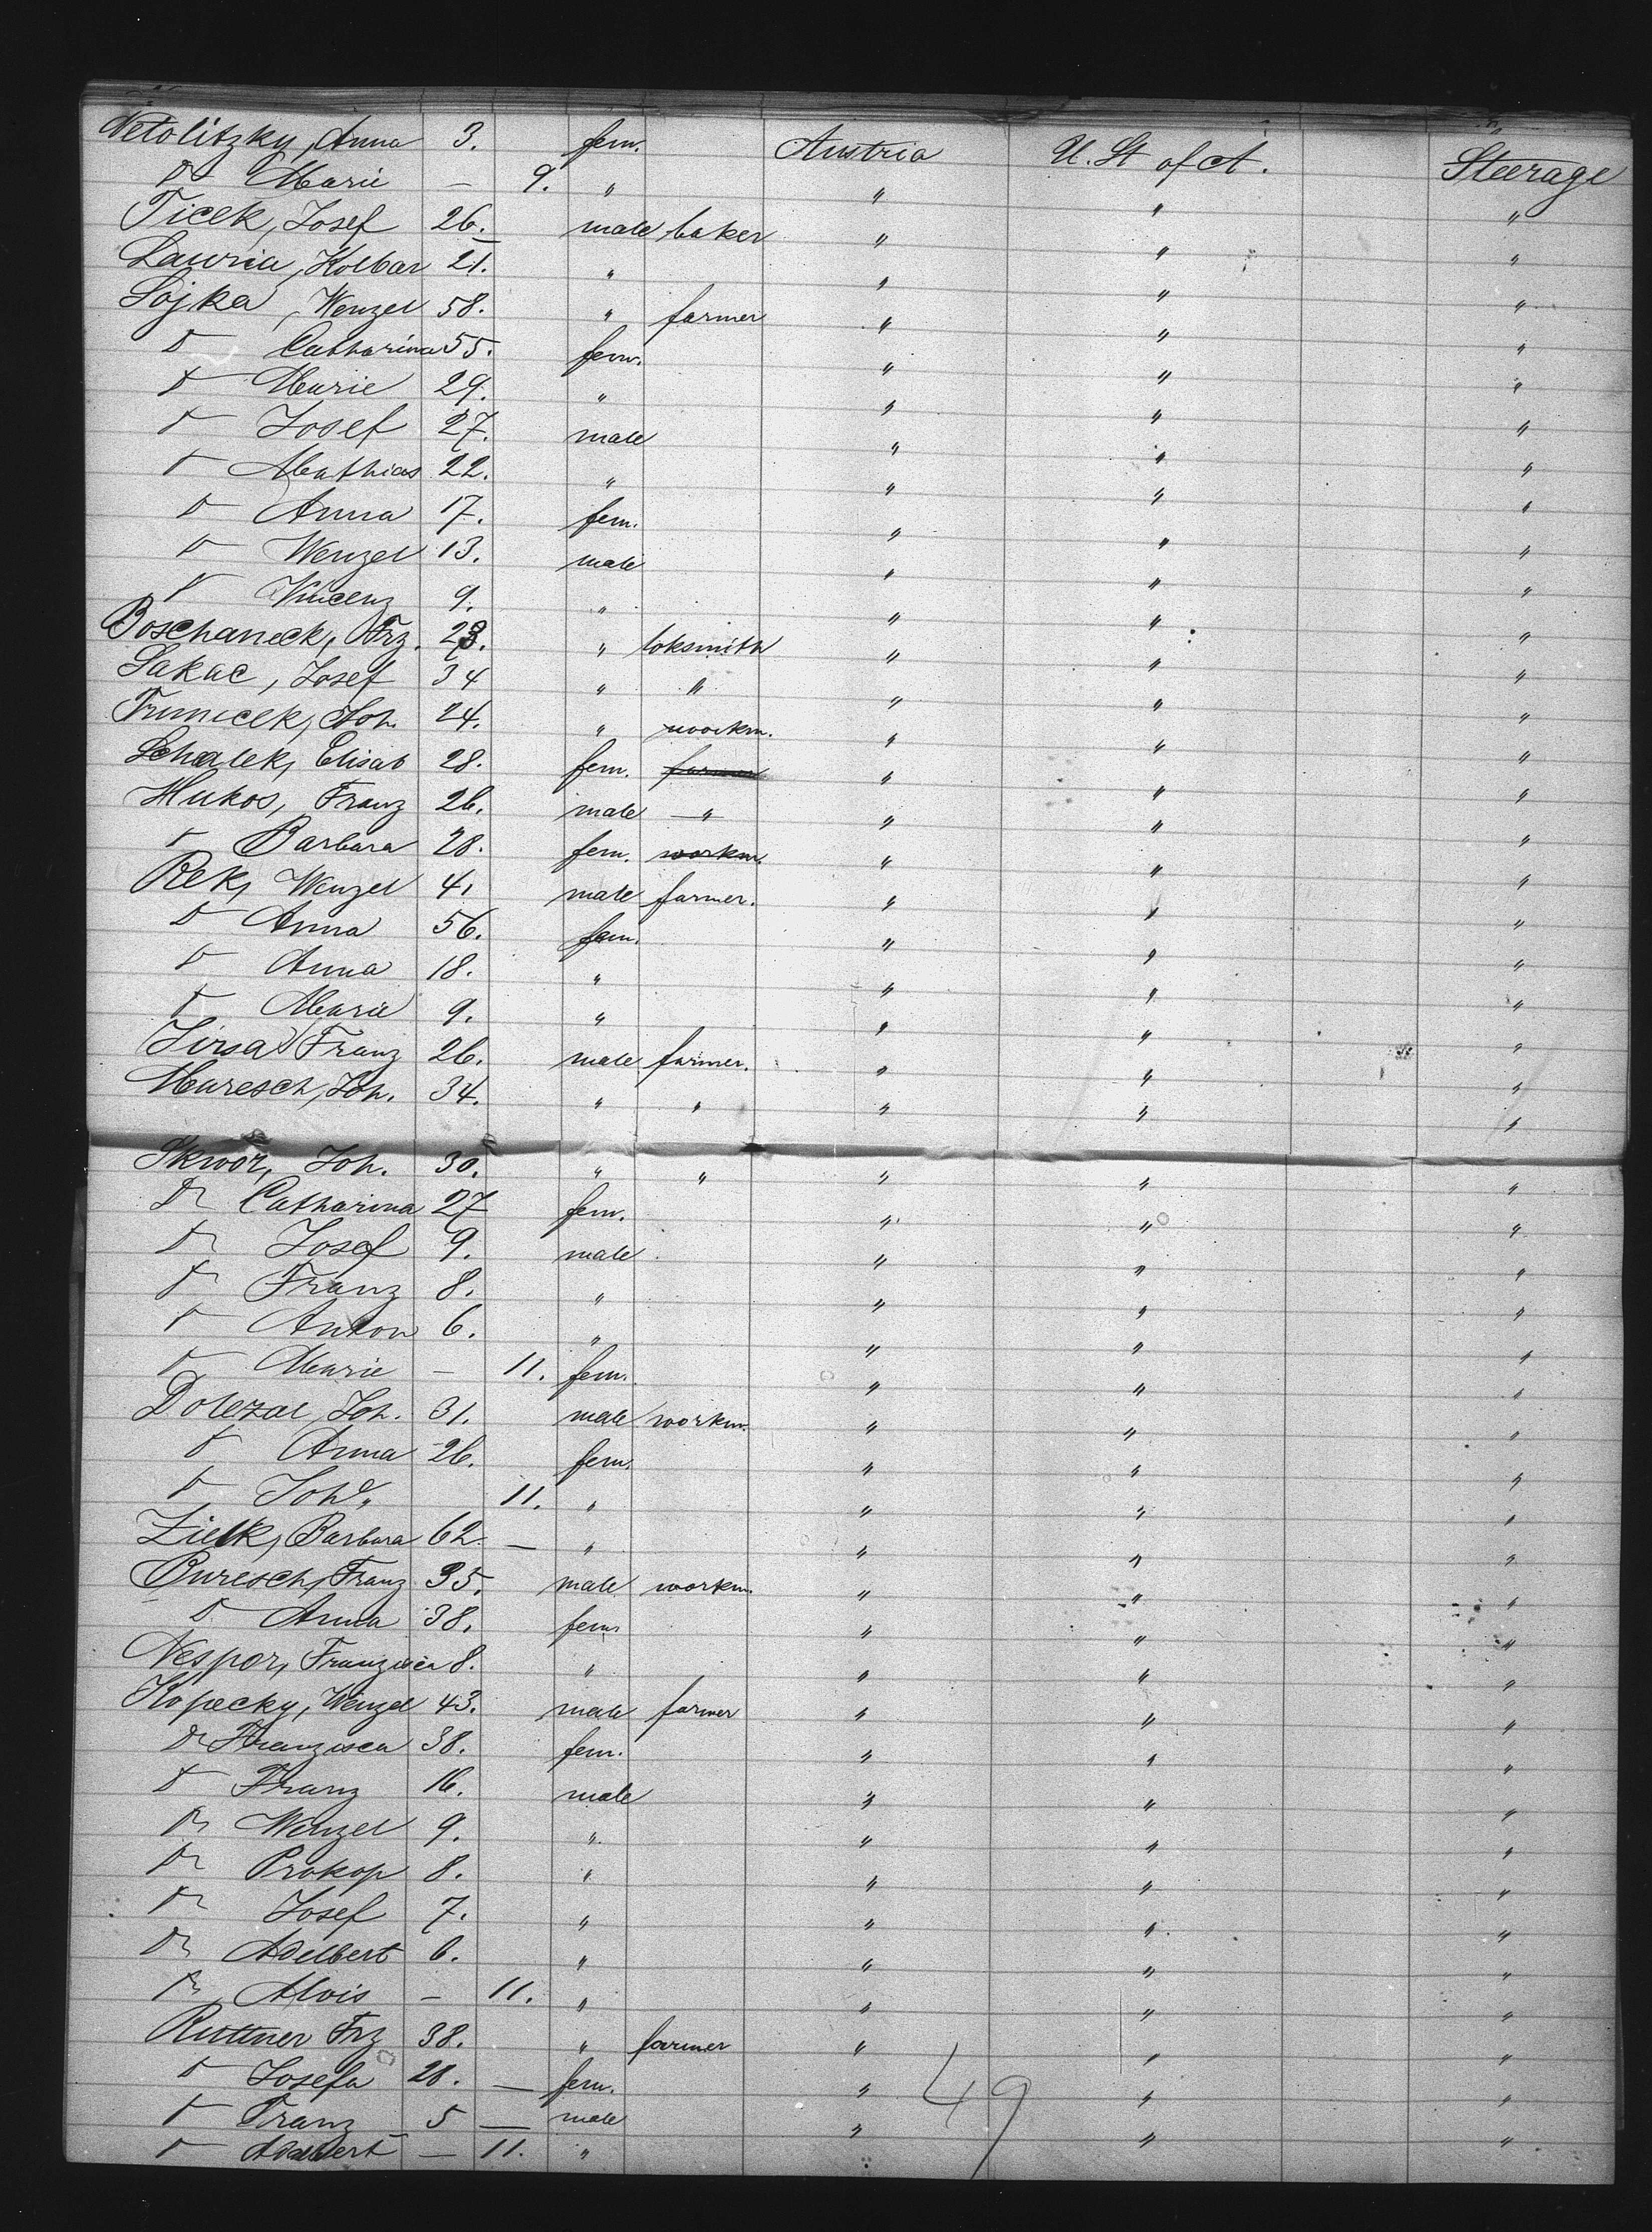 Netolitzky, Anna 3. fem. Austria U. St of A. Steerage
do Marie — 9. " " " "
Ticek, Josef 26. male baker " " "
Lauria, Kolbar 21. " " " "
Sojka, Wenzel 58. " farmer " " "
do Catharina 55. fem. " " "
do Marie 29. " " " "
do Josef 27. male " " "
do Mathias 22. " " " "
do Anna 17. fem. " " "
do Wenzel 13. male " " "
do Vincenz 9. " " " "
Boschaneck, Frz. 23. " loksmith " " "
Sakac, Josef 34 " " " " "
Trunecek, Joh. 24. " workm. " " "
Schalek, Elisab 28. fem. farmer " " "
Hukos, Franz 26. male — " " " "
do Barbara 28. fem. workm. " " "
Rek, Wenzel 41 male farmer. " " "
do Anna 56. fem. " " "
do Anna 18. " " " "
do Marie 9. " " " "
Jirsa Franz 26. male farmer. " " "
Maresch, Joh. 34. " " " " "
Skwor, Joh. 30. " " " " "
do Catharina 27 fem. " " "
do Josef 9. male " " "
do Franz 8. " " " "
do Anton 6. " " " "
do Marie — 11. fem. " " "
Dolezal, Joh. 31. male workm. " " "
do Anna 26. fem. " " "
do Joh. 11. " " " "
Zielk, Barbara 62. — " " " "
Buresch, Franz 35. male workm. " " "
do Anna 38. fem. " " "
Nespor, Franzisca 8. " " " "
Kopecky, Wenzel 43. male farmer " " "
do Franzisca 38. fem. " " "
do Franz 16. male " " "
do Wenzel 9. " " " "
do Prokop 8. " " " "
do Josef 7. " " " "
do Adelbert 6. " " " "
do Alois — 11. " " " "
Ruttner Frz 38. " farmer " " "
do Josefa 28. — fem. " " "
do Franz 5 — male " " "
do Adalbert — 11. " " "
49